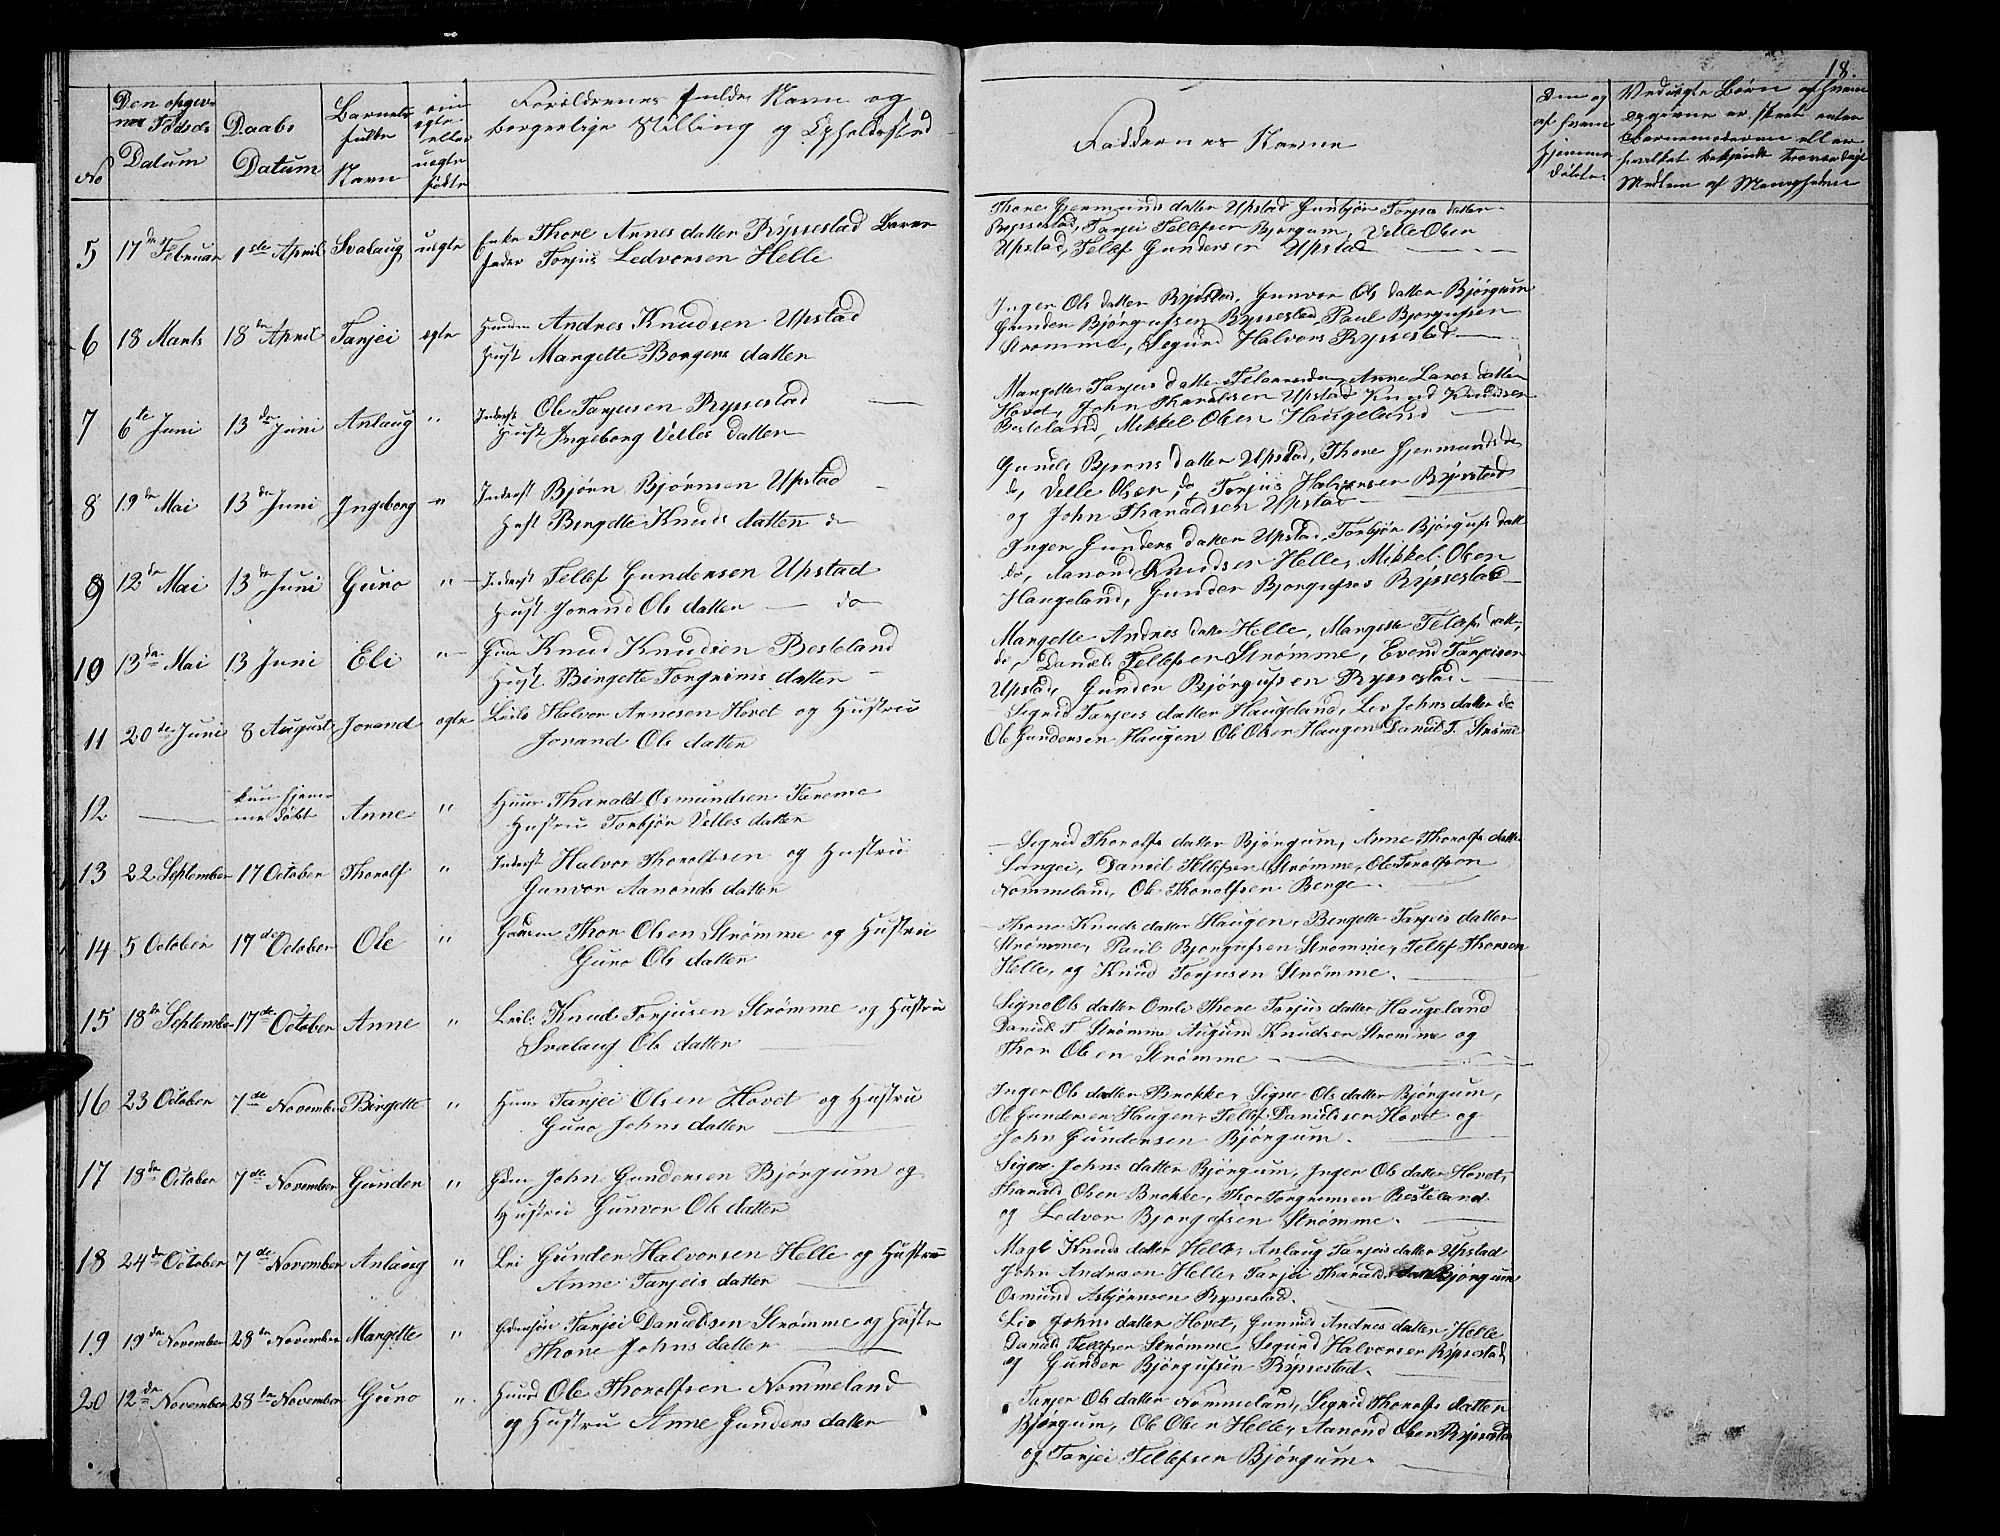 18.
No
Den opgiv-
ne Fødsels
Datum
Daabs
Datum
Barnets
fulde
Navn
om
egte
eller
uegte
fødte
Forældrenes fulde Navn og
borgerlige Stilling og Opholdssted
Faddernes Navne
Om og
af hvem
hjemme
døbte
Ved uegte Børn af hvem
Opgivne er skeet enten
Barnemoderen eller
hvilket bekjendt troværdigt
Medlem af Menigheden
5 17de Februar 1ste April Svalaug uegte Enke Thore Annes datter Ryssestad Barne
fader Torjus Ledvorsen Helle
Thore Gjermunds datter Upstad Gunbjør Torjus datter
Ryssestad, Tarjei Tellefsen Bjørgum, Velle Olsen
Upstad, Tellef Gundersen Upstad
6 18 Marts 18de April Tarjei egte Andres Knudsen Upstad
Hust Margette Borgers datter
Inger Ols datter Ryssestad, Gunvor Ols datter Bjørgum
Gunder Bjørgufsen Ryssestad, Paul Bjørgufsen
Strømme, Segurd Halvors Ryssestad
7 6te Juni 13de Juni Anlaug " Inderst Ole Tarjeisen Ryssestad
Hust Ingeborg Velles datter
Margette Tarjeis datter Anne Lares datter
Hovet, John Tharaldsen Upstad Knud Knudsen
Besteland, Mikkel Olsen Haugeland
8 19de Mai 13de Juni Ingeborg " Inderst Bjørn Bjørnsen Upstad
Hust Birgitte Knuds datter do
Gunild Bjørns datter Upstad, Thore Gjermundsda
do, Velle Olsen, do, Torjus Halvorsen Ryssestad
og John Tharaldsen Upstad
9 12de Mai 13de Juni Guro " Inderst Tellef Gundersen Upstad
Hust. Jorand Ols datter do
Inger Gunders datter Upstad, Torbjør Bjørgufs datt
do, Aanond Knudsen Helle, Mikkel Olsen
Haugeland, Gunder Bjørgufsen Ryssestad
10 13de Mai 13 Juni Eli " Knud Knudsen Besteland
Hust. Birgette Torgrims datter
Margette Andres datt Helle, Margette Tellefs datt
do, Daniel Tellefsen Strømme, Evend Tarjeisen
Upstad, Gunder Bjørgufsen Ryssestad
11 20de Juni 8 August Jorand egte Leil. Halvor Annesen Hovet og Hustru
Jorand Ols datter
Sigrid Tarjeis datter Haugeland, Liv Johns datter do
Ole Gundersen Haugen Ole Olsen Haugen Daniel T. Strømme
12 — kun hjem-
me døbt Anne " Huus Tharald Osmundsen Tareme
Hustru Torbjør Velles datter
13 22 September 17 October Thorolf " Inderst Halvor Thorolfsen og Hustru
Gunvor Aanonds datter
Sigrid Thorolfs datter Bjørgum, Anne Thorolfs datter
Langei, Daniel Tellefsen Strømme, Ole Torolfson
Nommeland, Ole Thorolfsen Berge.
14 5 October 17de October Ole " Thor Olsen Strømme og Hustru
Guro Ols datter
Thone Knuds datter Haugen, Bergette Tarjeis datter
Strømme, Paul Bjørgufsen Strømme, Tellef Thorsen
Helle, og Knud Torjusen Strømme.
15 18de September 17de October Anne " Leil. Knud Torjusen Strømme og Hustru
Svalaug Ols datter
Signe Ols datter Omli Thore Torjus datter Haugeland
Daniel T Strømme Augund Knudsen Strømme og
Thor Olsen Strømme
16 23 October 7de November Birgette " Huus Tarjei Olsen Hovet og Hustru
Guro Johns datter
Inger Ols datter Brokke, Signe Ols datter Bjørgum,
Ole Gundersen Haugen, Tellef Danielsen Hovet og
John Gundersen Bjørgum.
17 18de October 7de November Gunder " John Gundersen Bjørgum og
Hustru Gunvor Ols datter
Signe Johns datter Bjørgum, Inger Ols datter Hovet,
Tharald Olsen Brokke, Thor Torgrimsen Besteland
og Ledvor Bjørgufsen Strømme.
18 24de October 7de November Anlaug " Lei Gunder Halvorsen Helle og Hustru
Anne Tarjeis datter
Magl Knuds datter Helle, Anlaug Tarjeis datter Upstad
John Andresen Helle, Tarjei Tharalds Bjørgum
Osmund Asbjørnsen Ryssestad.
19 19de November 28de November Margitte " Tarjei Danielsen Strømme og Hustr
Thone Johns datter
Liv Johns datter Hovet, Gunnild Andres datter Helle
Daniel Tellefsen Strømme Segurd Halvorsen Ryssestad
og Gunder Bjørgufsen Ryssestad.
20 12de November 28de November Guro " Huus Ole Thorolfsen Nommeland
og Hustru Anne Gunders datter
Tarjer Ols datter Nommeland, Sigrid Thorolfs datter
Bjørgum, Ole Olsen Helle, Aanond Olsen Ryssestad
og Tarjei Tellefsen Bjørgum.